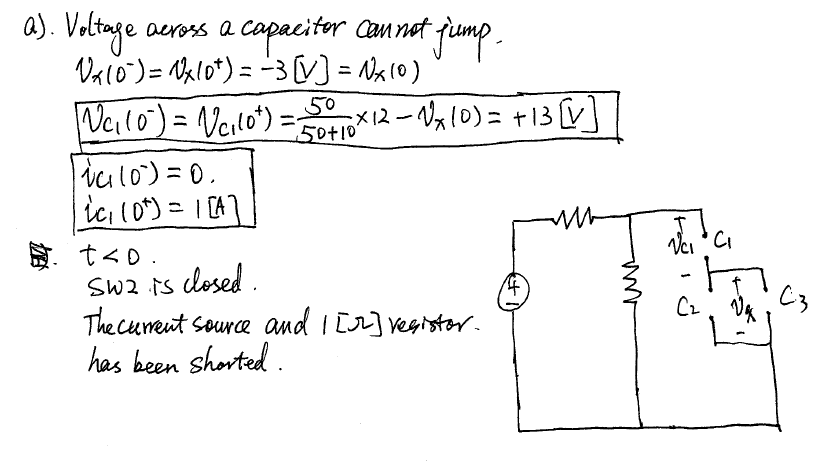 a). Voltage across a capacitor cannot jump.
Vx(0⁻) = Vx(0⁺) = -3 [V] = Vx(0)
Vc₁(0⁻) = Vc₁(0⁺) = 50/50+10 × 12 - Vx(0) = +13 [V]
ic₁(0⁻) = 0.
ic₁(0⁺) = 1 [A]
t < 0.
SW2 is closed.
The current source and 1 [Ω] resistor.
has been shorted.
+ Vc₁ - C₁
+ -
C₂ + Vx - C₃